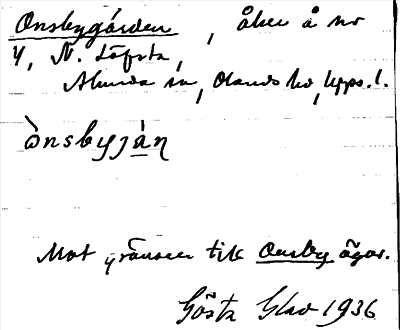 Onsbygården, åker å no
4, N. Löfsta,
Almunda sn, Olands hd, Upps. l.
ònsbyjàṇ
Mot gränsen till Onsby ägor.
Gösta Glad 1936